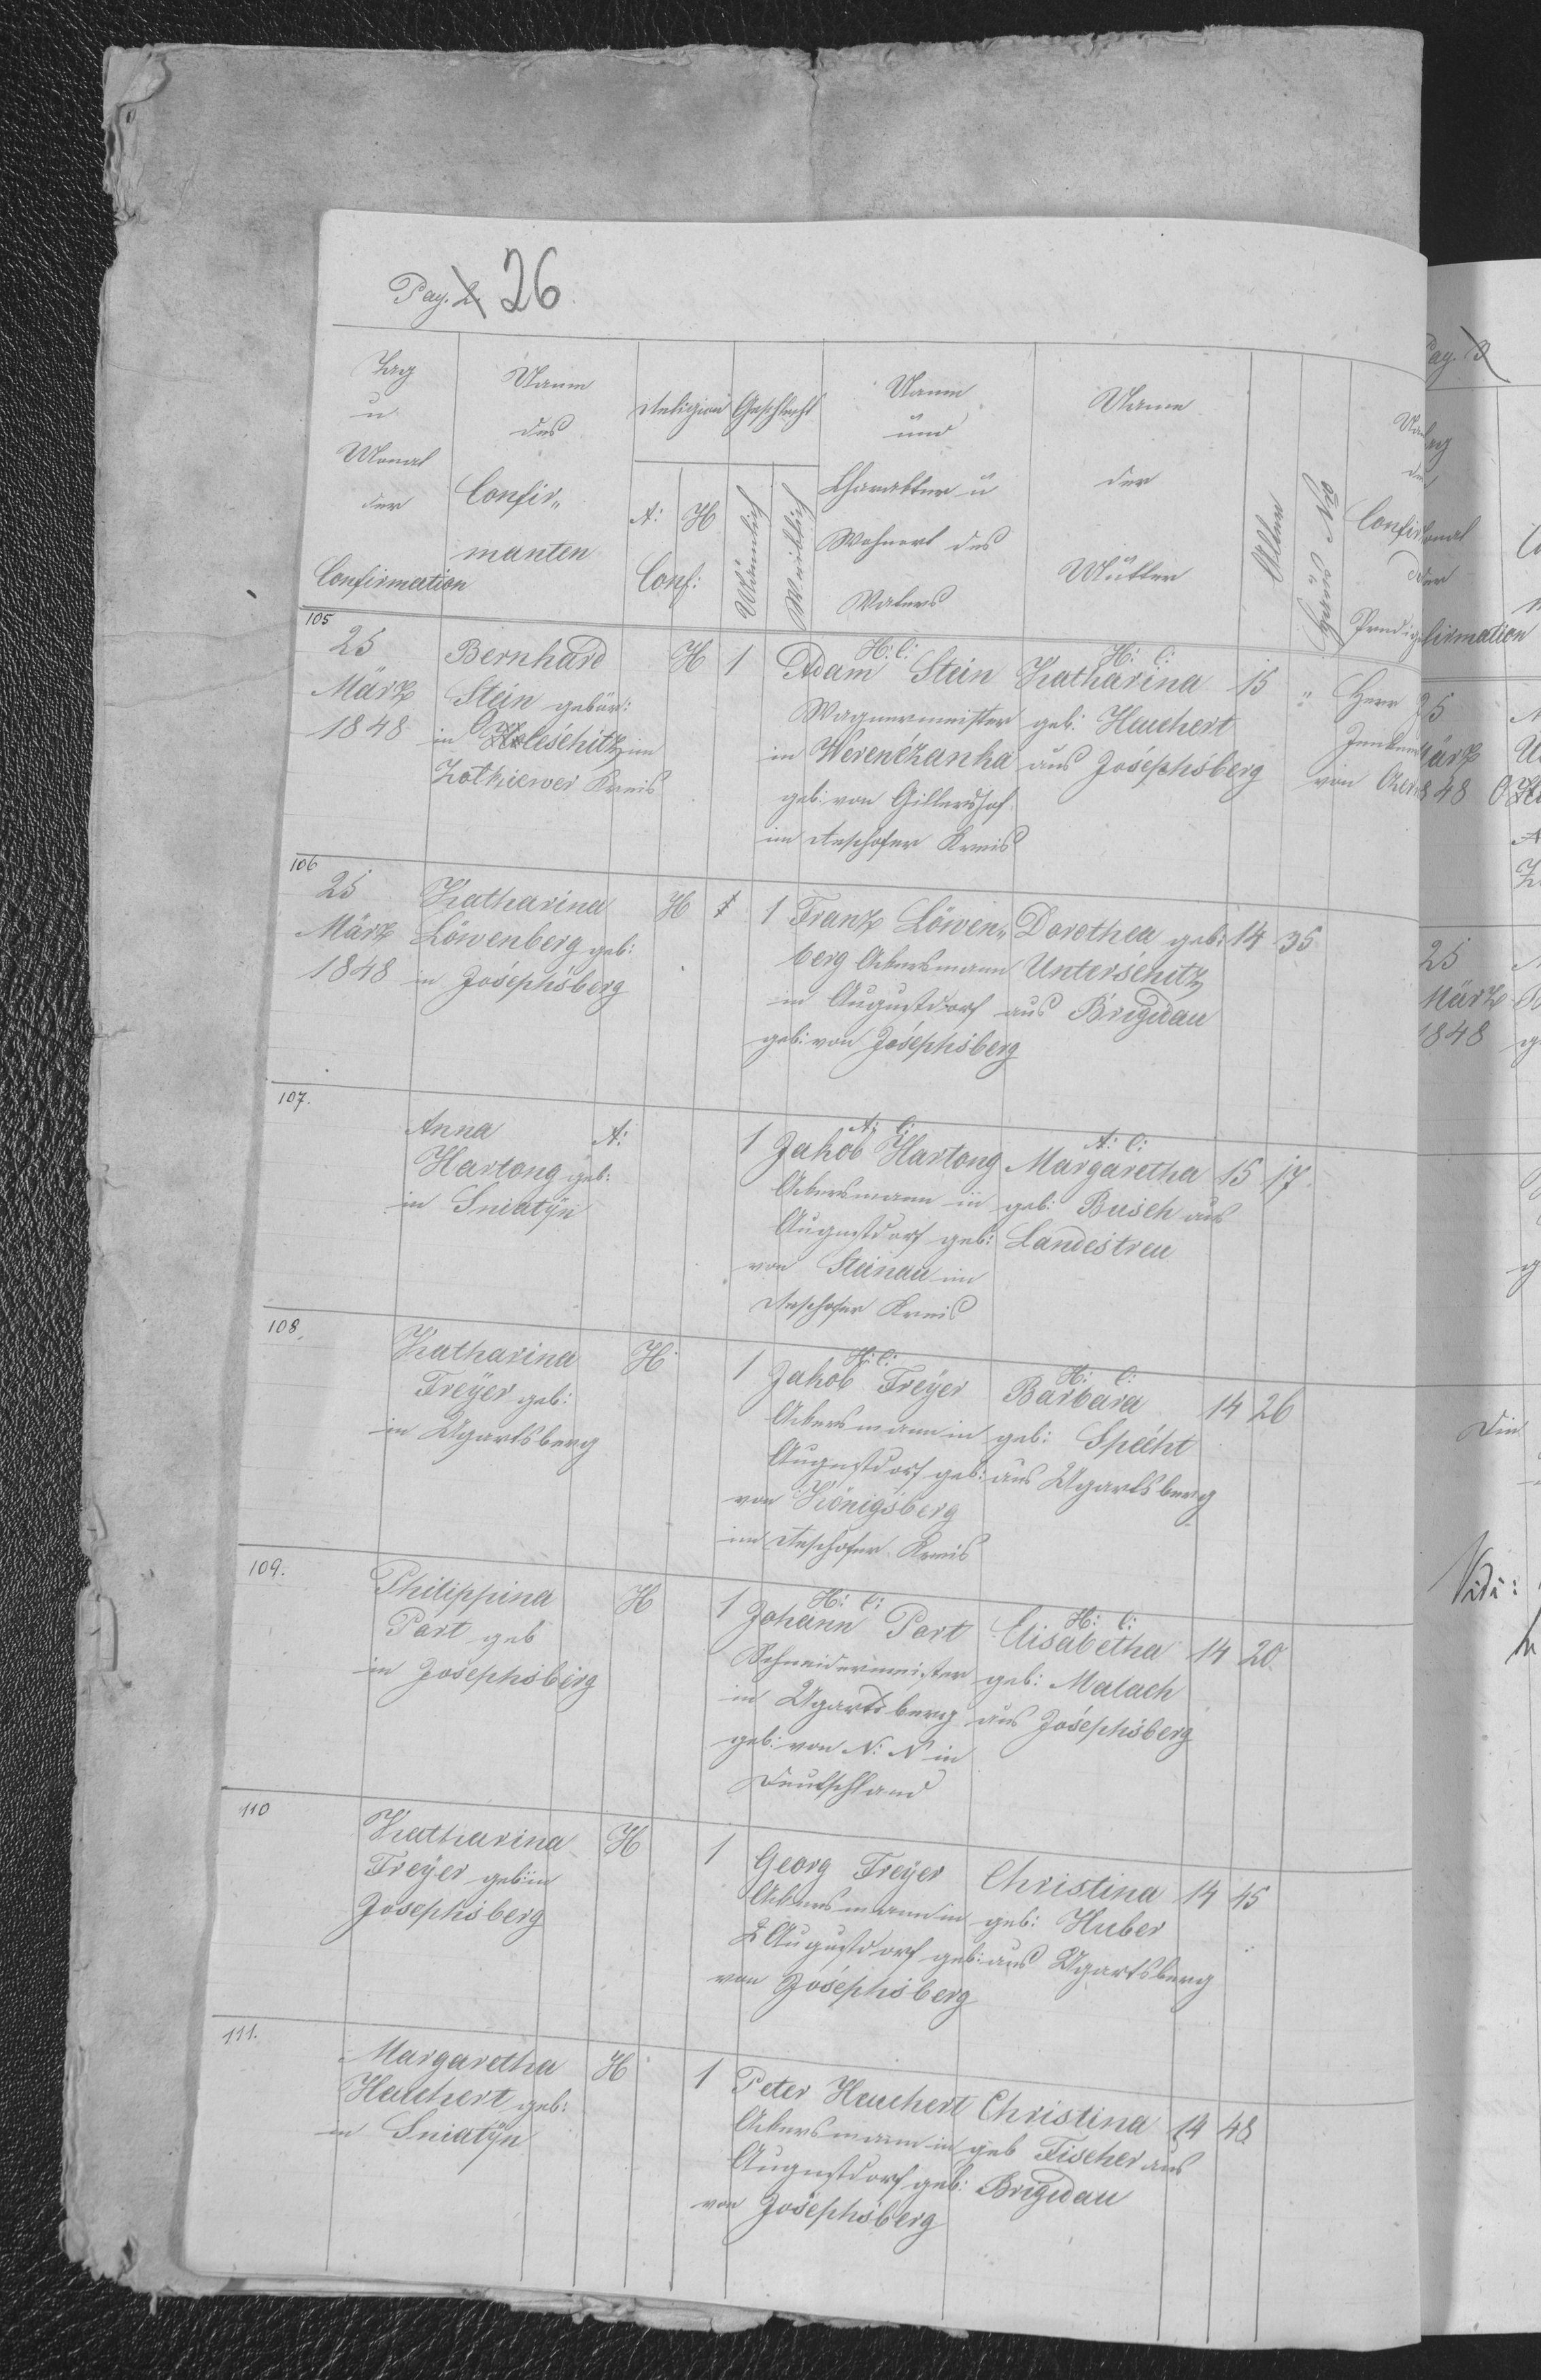 Pag. 2. 26.
Tag
u
Monat
der
Confirmation
Name
des
Confir„
manten
Religion
A: H
Conf:
Geschlecht
Männlich
Weiblich
Name
und
Charakter u
Wohnort des
Vaters
Name
der
Mutter
Alter
Haus Nro
Confir
Predig
105
25
März
1848
Bernhard
Stein gebür:
in leschitz im
Zolkiewer Kreis
H 1
H: C:
Adam Stein
Wagnermeister
in Werenczanka
geb: von Gillershof
im Reschofer Kreis
H: C:
Katharina
geb: Heuchert
aus Josephsberg
15 "
Herr
von
106
25
März
1848
Katharina
Löwenberg geb:
in Josephsberg
H 1
Franz Löwen„
berg Akersmann
in Augustdorf
geb: von Josephsberg
Dorothea geb:
Unterschitz
aus Brigidau
14 35
107.
Anna
Hartong geb:
in Sniatÿn
A: 1
A: C:
Jakob Hartong
Akersmann in
Augustdorf geb:
von Steinau im
Reschofer Kreis
A: C:
Margaretha
geb: Busch aus
Landestreu
15 17.
108.
Katharina
Freÿer geb:
in Ugartsberg
H 1
H: C:
Jakob Freÿer
Akersmann in
Augustdorf geb:
von Königsberg
im Reschofer Kreis
H: C:
Barbara
geb: Specht
aus Ugartsberg
14 26
109.
Philippina
Port geb
in Josephsberg
H 1
H: C:
Johann Port
Schneidermeister
in Ugartsberg
geb: von N: N in
Deutschland
H: C:
Elisabetha
geb: Malach
aus Josephsberg
14 20.
110
Katharina
Freÿer geb: in
Josephsberg
H 1
Georg Freÿer
Akersmann in
Augustdorf geb:
von Josephsberg
Christina
geb: Huber
aus Ugartsberg
14 45
111.
Margaretha
Heuchert geb:
in Sniatÿn
H 1
Peter Heuchert
Akersmann in
Augustdorf geb:
von Josephsberg
Christina
geb Fischer aus
Brigidau
14 48
Pag. 3
firmation
25
März
1848
Vidi: